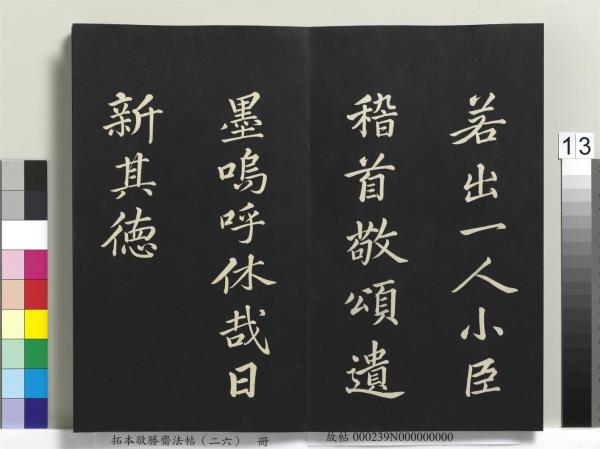 若出一人小臣
稽首敬頌遺
墨嗚呼休哉日
新其德
13
拓本敬勝齋法帖（二六）　冊
故帖 000239N000000000